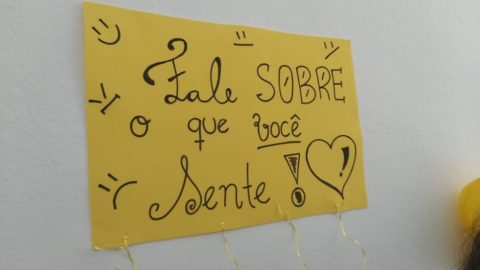 Fale SOBRE
o que você
Sente!
!